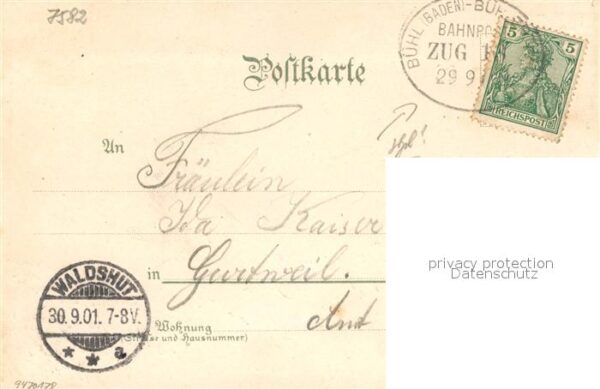 7582
BÜHL (BADEN)-BÜH
BAHNPO
ZUG 1
29 9
5 5
REICHSPOST
Postkarte
An
Fräulein
Ida Kaiser
in Gurtweil.
Amt
Wohnung
(Straße und Hausnummer)
WALDSHUT
30.9.01. 7-8V.
* * a
privacy protection
Datenschutz
9470178